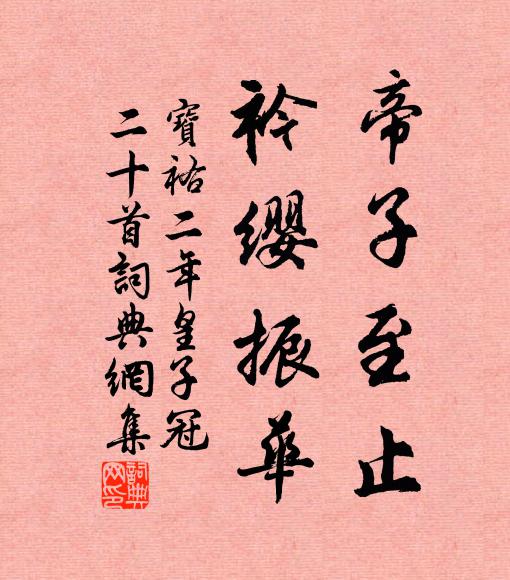 帝子至止
衿缨振華
寶祐二年皇子冠
二十首詞典網集
詞典网印